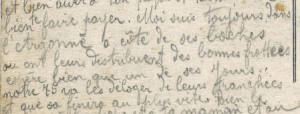 bien faire payer. Moi suis toujours dans
l'argonne à côté de ses boches
ou ont leurs distribuent des bonnes
bien que un de ses jours
notre 75 va les déloger de leurs tranchées
et que sa finira au plus vite bien
maman et